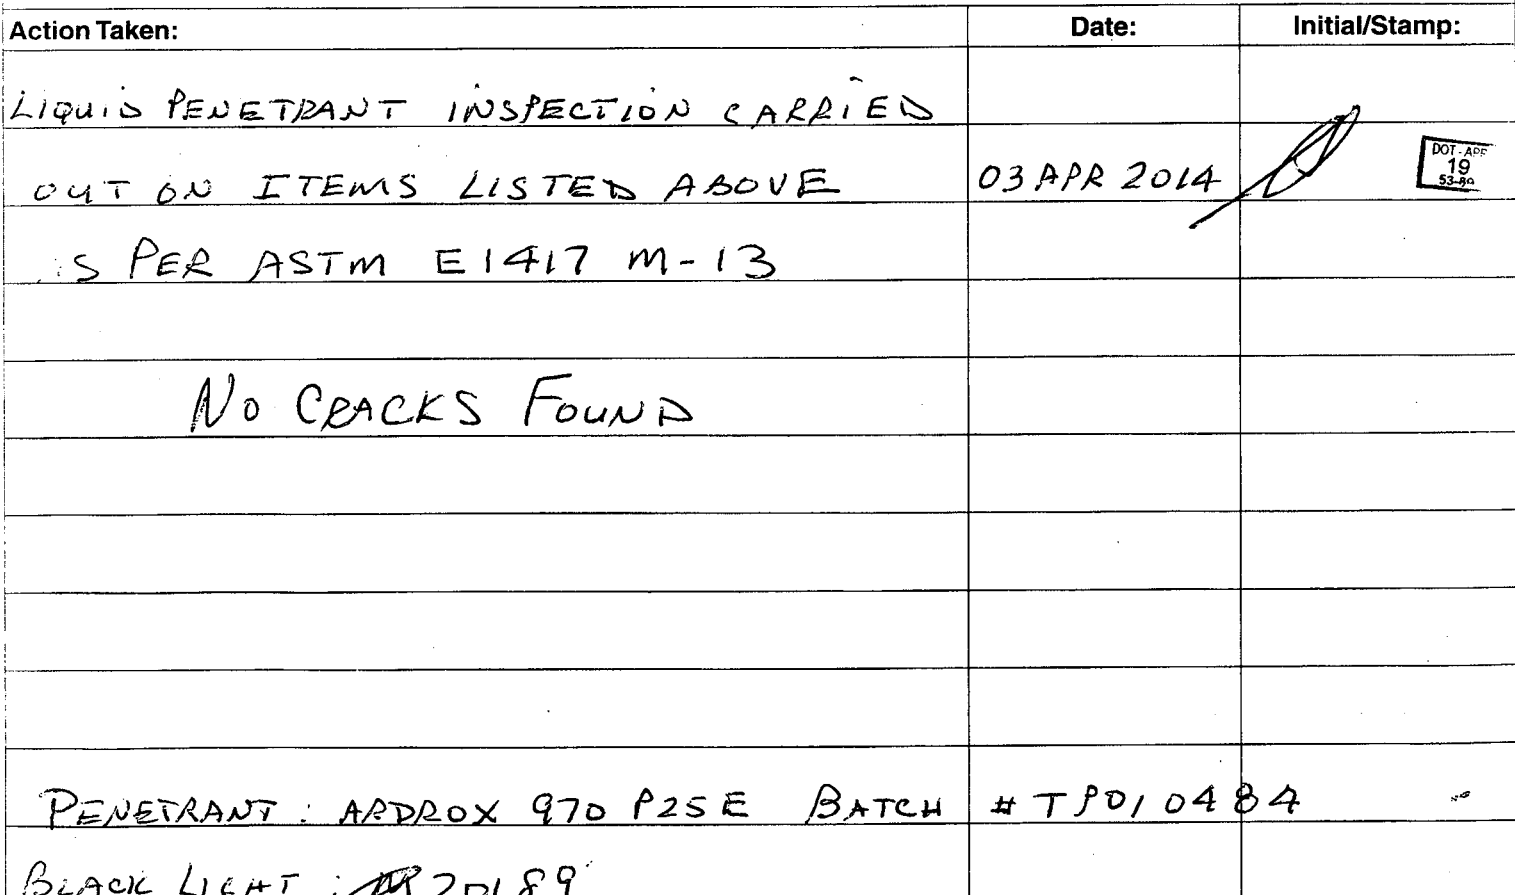 Action Taken: Date: Initial/Stamp:
LIQUID PENETRANT INSPECTION CARRIED
OUT ON ITEMS LISTED ABOVE 03 APR 2014
DOT-APP
19
53-80
PER ASTM E1417 M-13
NO CRACKS FOUND
PENETRANT: ARDROX 970 P25E BATCH # TP010484
BLACK LIGHT : 20189